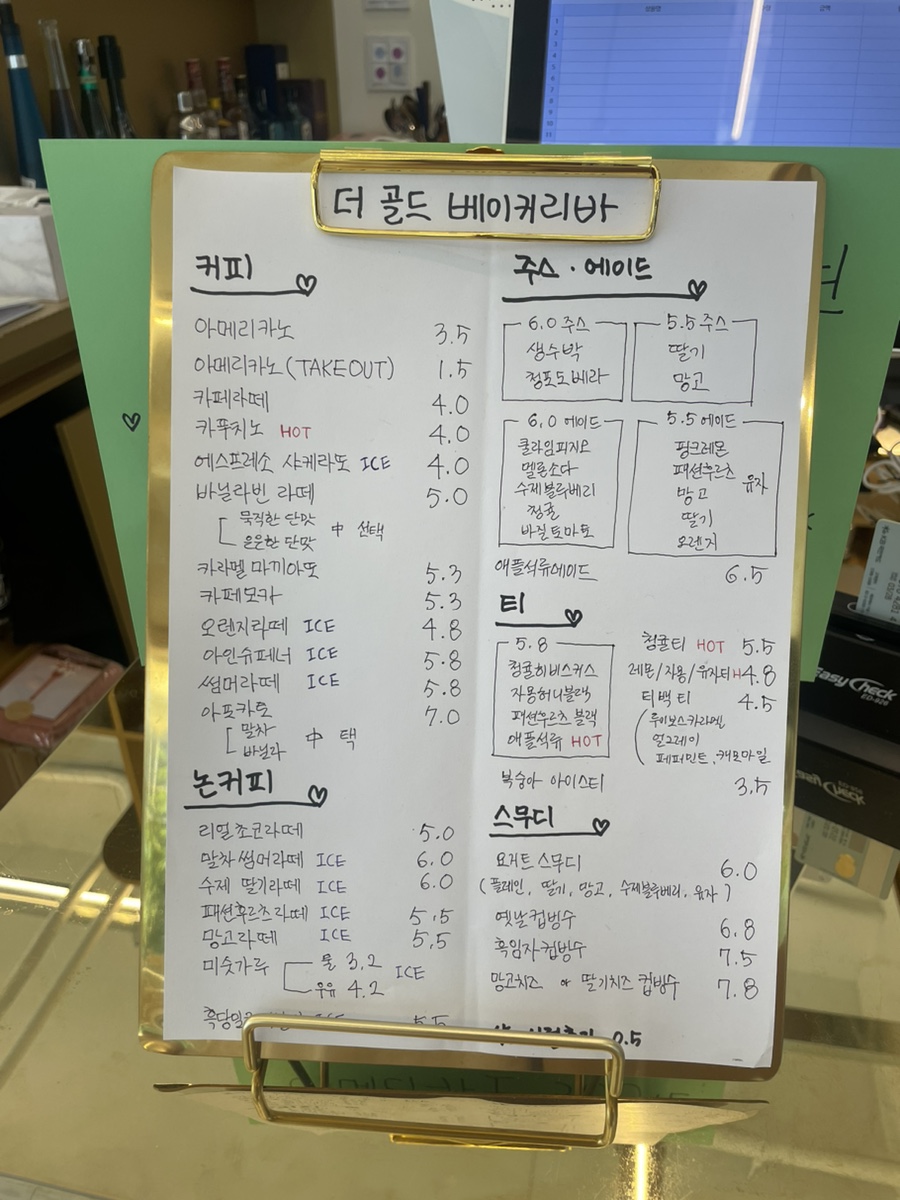 더 골드 베이커리바
커피
아메리카노 3.5
아메리카노(TAKEOUT) 1.5
카페라떼 4.0
카푸치노 HOT 4.0
에스프레소 샤케라또 ICE 4.0
바닐라빈 라떼 5.0
묵직한 단맛
은은한 단맛
中 선택
카라멜 마끼아또 5.3
카페모카 5.3
오렌지라떼 ICE 4.8
아인슈페너 ICE 5.8
썸머라떼 ICE 5.8
아포카토 7.0
말차
바닐라
中 택
논커피
리얼초코라떼 5.0
말차썸머라떼 ICE 6.0
수제 딸기라떼 ICE 6.0
패션후르츠라떼 ICE 5.5
망고라떼 ICE 5.5
미숫가루 물 3.2
우유 4.2
ICE
5.5
주스·에이드
6.0 주스
생수박
청포도베라
5.5 주스
딸기
망고
6.0 에이드
쿨라임피지오
멜론소다
수제블루베리
청귤
바질토마토
5.5 에이드
핑크레몬
패션후르츠
망고
딸기
오렌지
유자
애플석류에이드 6.5
티
5.8
청귤히비스커스
자몽허니블랙
패션후르츠 블랙
애플석류 HOT
청귤티 HOT 5.5
레몬/자몽/유자티 H 4.8
티백티 4.5
루이보스카라멜,
얼그레이
페퍼민트, 캐모마일
복숭아 아이스티 3.5
스무디
요거트스무디 6.0
(플레인, 딸기, 망고, 수제블루베리, 유자)
옛날컵빙수 6.8
흑임자컵빙수 7.5
망고치즈 or 딸기치즈 컵빙수 7.8
0.5
EasyCheck
ED-928
EasyCheck